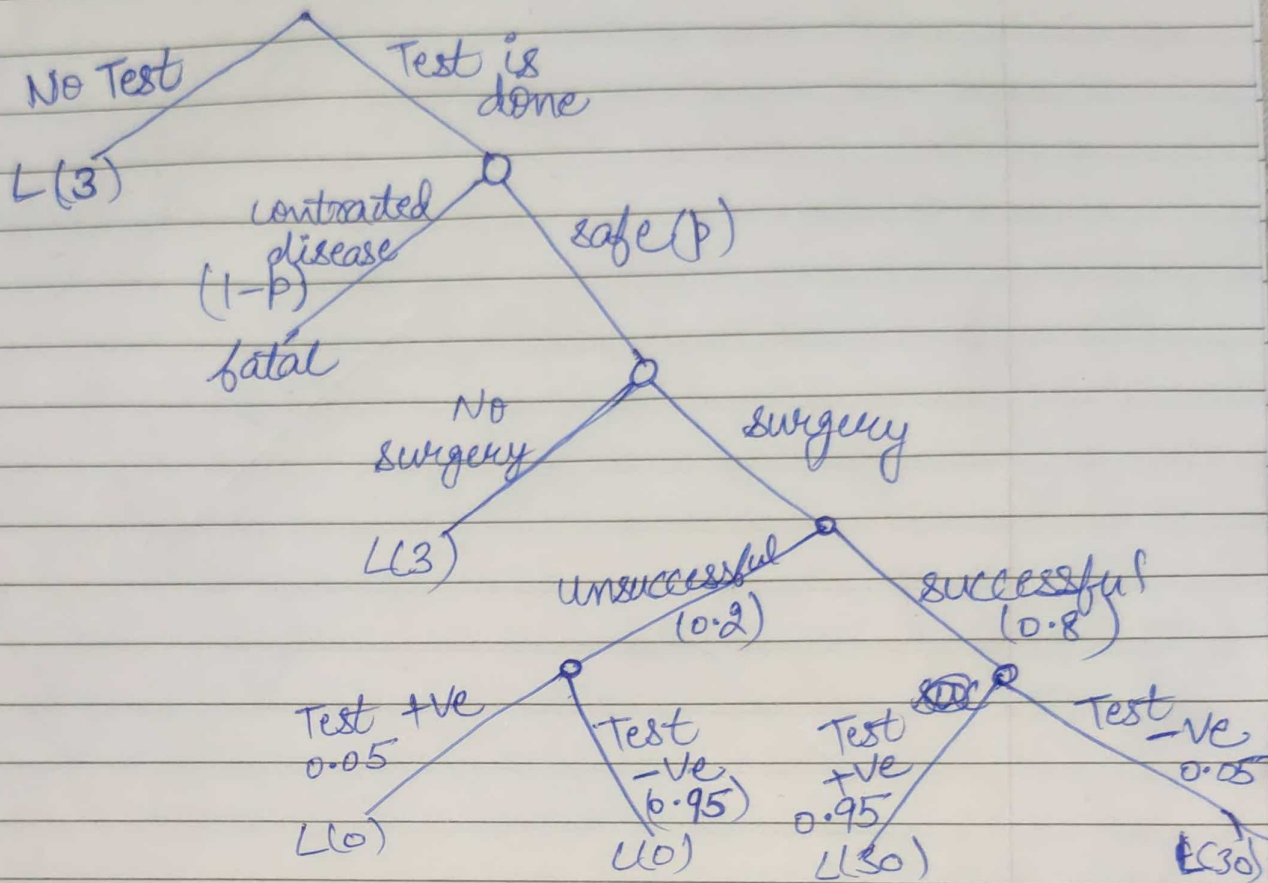 No Test
Test is
done
L(3)
contracted
disease
(1-p)
safe(p)
fatal
No
surgery
surgery
L(3)
unsuccessful
(0.2)
successful
(0.8)
Test +ve
0.05
Test
-ve
(0.95)
Test
+ve
0.95
Test
-ve
0.05
L(0)
L(0)
L(30)
L(30)